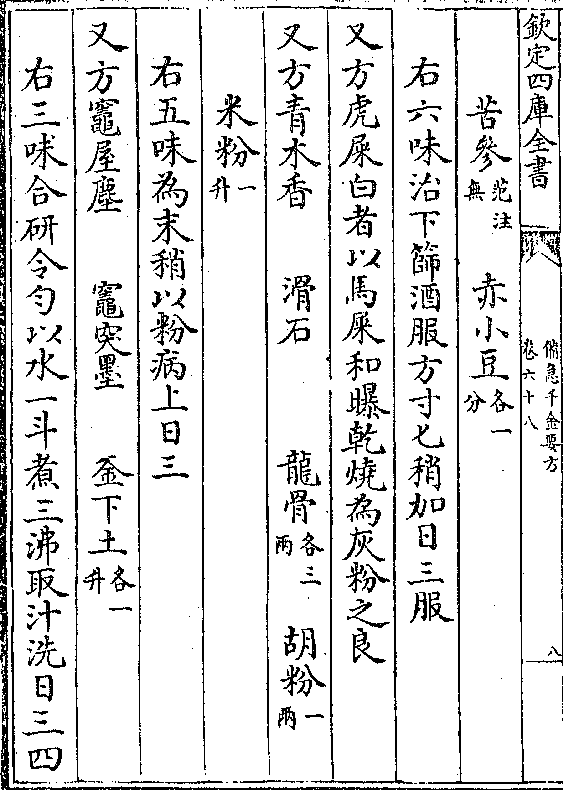 欽定四庫全書
備急千金要方
卷六十八
八
苦參范注無 赤小豆各一分
右六味治下篩酒服方寸匕稍加日三服
又方虎屎白者以馬屎和曝乾燒為灰粉之良
又方青木香 滑石 龍骨各三兩 胡粉一兩
米粉一升
右五味為末稍以粉病上日三
又方竈屋塵 竈突墨 釜下土各一升
右三味合研令勻以水一斗煮三沸取汁洗日三四